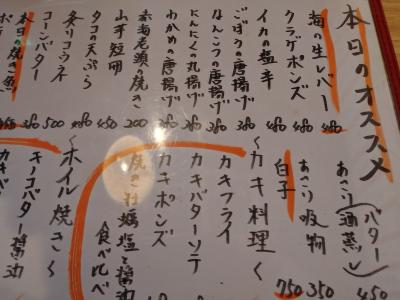 本日のオススメ
海の生レバー 480
クラゲポンズ 480
イカの塩辛 380
ごぼうの唐揚げ 380
なんこつの唐揚げ 380
にんにくの丸揚げ 380
わかめの唐揚げ 380
赤海老頭の焼き 200
山芋短冊 380
タコの天ぷら 450
冬リコウネ 480
コーンバター 500
本日の焼き魚
あさり(バター 酒蒸し) 450
あさり吸物 350
白子 750
くカキ料理く
カキフライ
カキバターソテ
カキポンズ
焼き牡蠣塩と醤油 食べ比べ
くホイル焼きく
キノコバター醤油